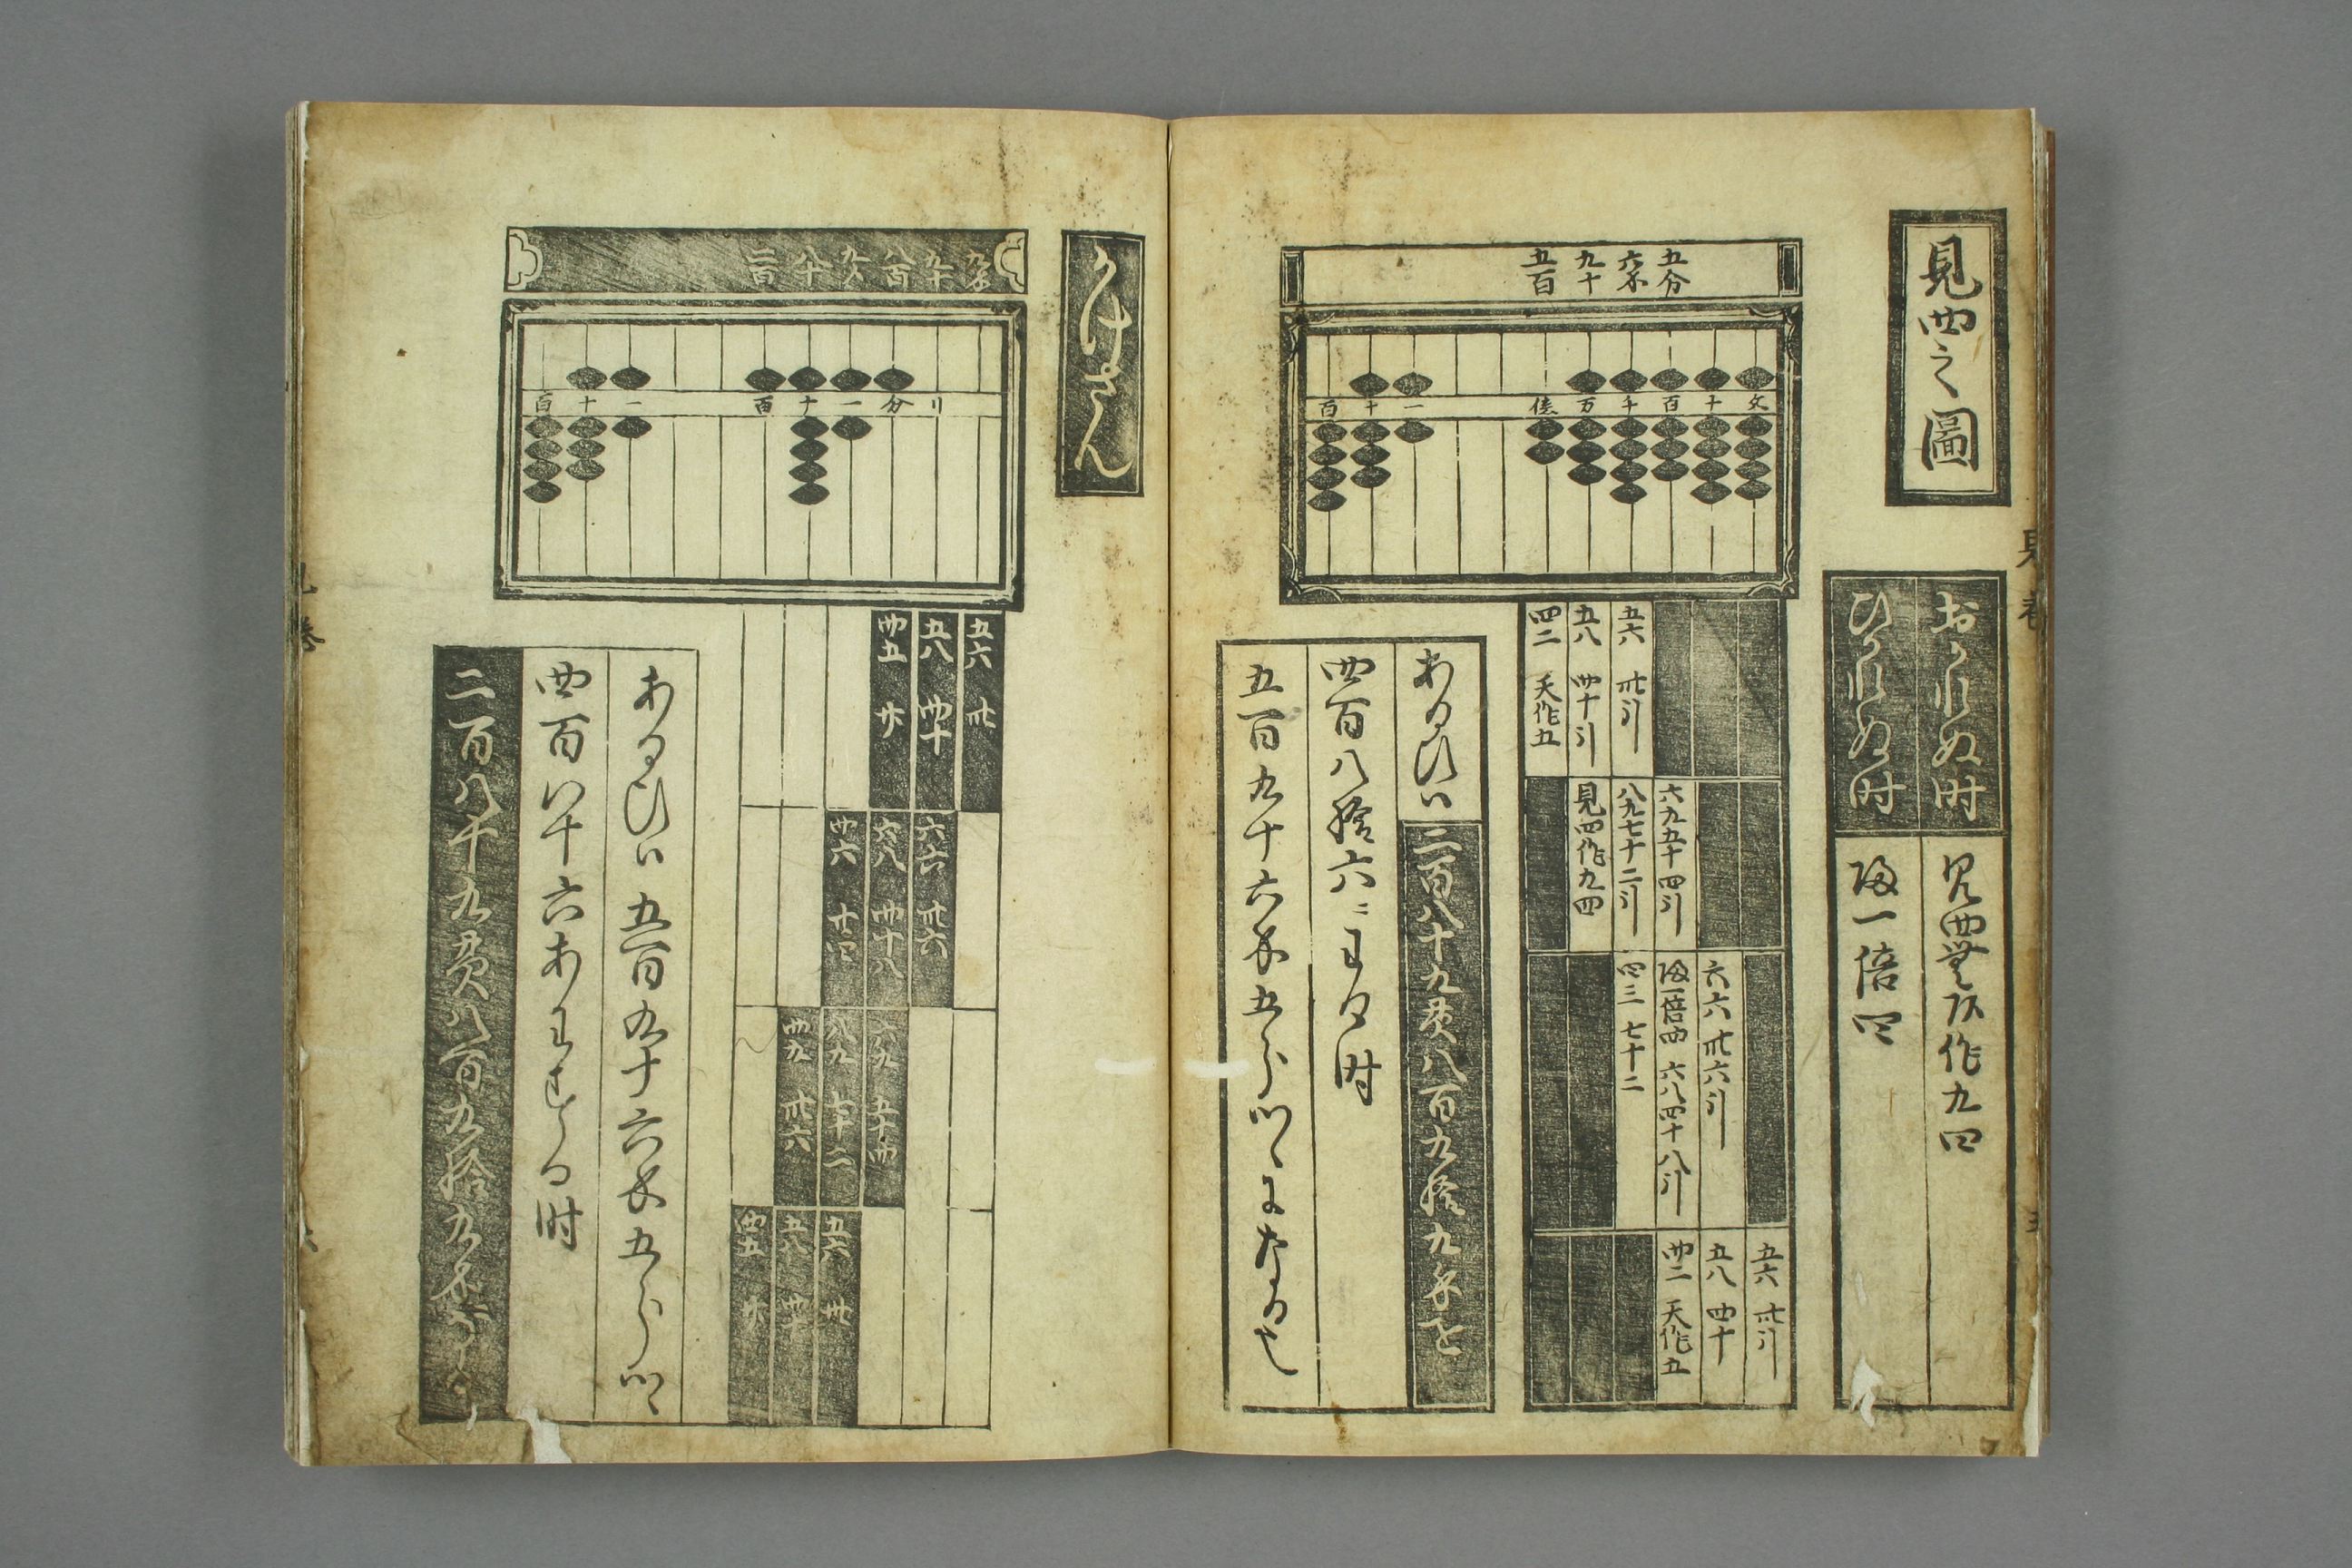 見四之圖
おかれぬ時
ひかれぬ時
見四無頭作九四
帰一倍四
五百
九十
六分
五分
百十一
億万千百十文
五六 卅引
五八 四十引
四二 天作五
六九五十四引
八九七十二引
見四作九四
六六 卅六引
帰一倍四 六八四十八引
四三 七十二
五六 卅引
五八 四十
四二 天作五
あるひハ 二百八十九貫八百九拾九文を
四百八拾六ニわる時
五百九十六文五分つゝになる也
かけざん
二百
八十
九〆
八百
九十
百十一
百十一分リ
五六 卅
五八 四十
四五 廿
六六 卅六
六八 四十八
四六 廿四
六九 五十四
八九 七十二
四九 卅六
五六 卅
五八 四十
四五 廿
あるひハ 五百九十六文五分つゝ
四百八十六あわする時
二百八十九貫八百九拾九文